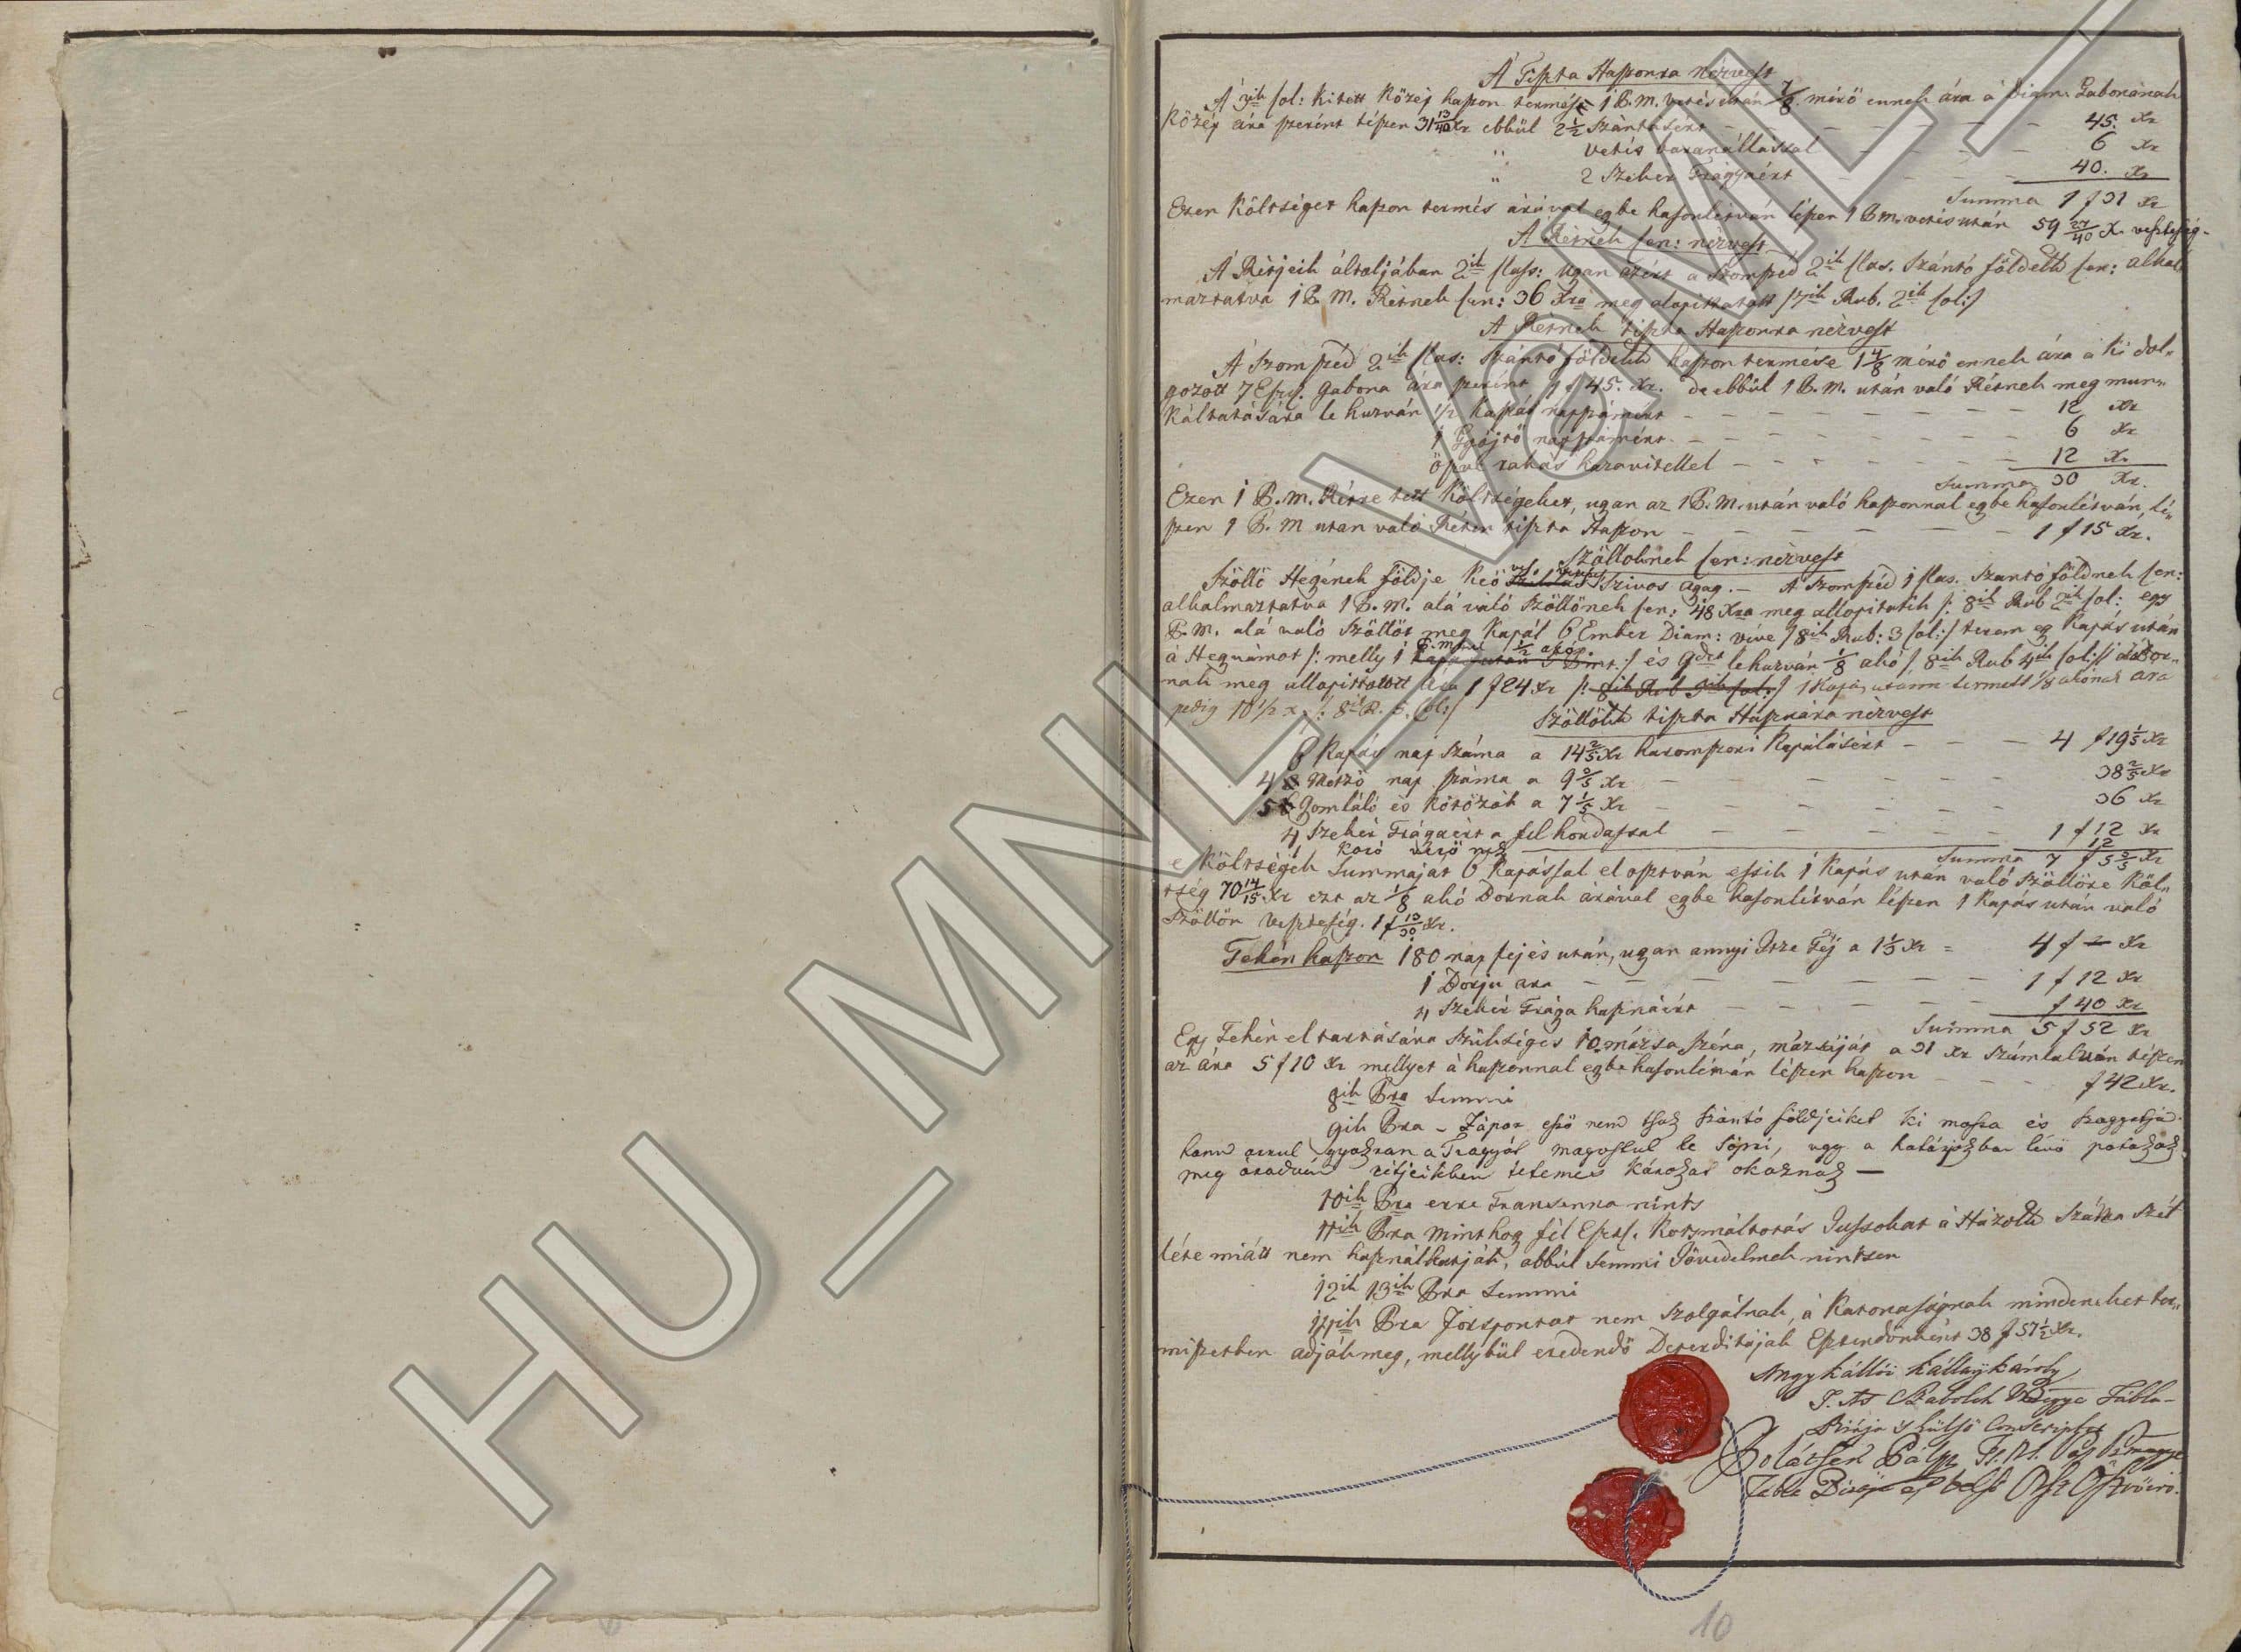 A Tiszta Haszonra nézvest
A 3ik Col: kitett közép haszon termése 1 P.M. vetés után 7/8 mérö ennek ára a Diam. Gabonának
közép ára szerént tészen 31 13/40 Xr ebbül 2 1/2 Szántásért — 45. Xr
" vetés boronállással — 6 Xr
" 2 Szekér Trágyáért — 40. Xr
Summa 1 f 31 Xr
Ezen költséget haszon termés árával egybe hasonlitván lészen 1 P.m. vetés után 59 27/40 X. veszteség.
A Rétnek Cen: nézvest
A Rétjeik általjában 2ik Class: ugan azért a szomszéd 2ik Clas. Szántó földekk Cen: alkal
maztatva 1 P. M. Rétnek Cen: 36 Xra meg alapittatott /7ik Rub. 2ik Col:/
A Rétnek tiszta Haszonra nézvest
A Szomszéd 2ik Clas: Szántó földekk haszon termése 1 4/8 mérö ennek ára a ki dol„
gozott 7 Eszt. gabona ára szerént 1 f 45. Xr. de ebbül 1 P.M. után való Rétnek meg mun„
káltatására le huzván 1/2 Kaszás napszámért — 12 Xr
1 Gyüjtö napszámért — 6 Xr
öszve rakás hazavitellel — 12 X.
Summa 30 Xr.
Ezen 1 P.M. Rétre tett költségeket, ugan az 1 P.M. után való haszonnal egbe hasonlitván, lé„
szen 1 P. M után való Réten tiszta Haszon — 1 f 15 Xr.
Szöllöknek Cen: nézvest
Szöllö Hegének földje Szivos agag. — A Szomszéd 1 Clas. Szantó földnek Cen:
alkalmaztatva 1 P. M. alá való Szöllönek Cen: 48 Xra meg allopitatik /: 8ik Rub 2ik Col: egy
P.M. alá való Szöllöt meg kapál 6 Ember Diam: véve /8ik Rub: 3 Col:/ terem eg Kapás után
à Hegvámot /: melly 1 P.M. 1/2 akó :/ és 9det lehuzván 1/8 akó /. 8ik Rub 4ik Col:/ à Bor„
nak meg allopittatott ára 1 f 24 Xr /: 8ik Rub 5ik Col:/ 1 Kapás utánn termett 1/8 akónak ára
pedig 10 1/2 x. /: 8ik R. 5. Col:/
Szöllökk tiszta Hasznára nézvest
6 Kapás nap száma a 14 2/5 Xr háromszori Kapálásért — 4 f 19 1/5 Xr
4 Metzö nap száma a 9 3/5 Xr — 38 2/5 Xr
5 Homláló és Kötözök a 7 1/5 Xr — 36 Xr
4 Szekér Trágáért a fel hordással — 1 f 12 Xr
1 Karó verö nap — 12
Summa 7 f 5 3/5 Xr
e költségek Summáját 6 Kapással el osztván essik 1 Kapás után való Szöllöre köl„
tség 70 14/15 Xr ezt az 1/8 akó Bornak árával egbe hasonlitván lészen 1 Kapás után való
Szöllön veszteség. 1 f 13/30 Xr.
Tehén haszon 180 nap fejés után, ugan annyi Itze Tej a 1 1/3 Xr = 4 f — Xr
1 Borju ára — 1 f 12 Xr
4 Szekér Trága hasznáért — f 40 Xr
Summa 5 f 52 Xr
Egy Tehén el tartására szükséges 10 mázsa széna, mázsáját a 31 Xr számlalván tészen
az ára 5 f 10 Xr mellyet à haszonnal egbe hasonlitván lészen haszon — f 42 Xr.
8ik Pra Semmi
9ik Pra – Zápor esö nem tsak szántó földjeiket ki mossa és szaggatja
hanem azzul gyakran a Tragyát magvastul le söpri, ugy a határjokban lévö patakok
meg áradván rétjeikben tetemes károkat okoznak —
10ik Pra erre Transenna nints
11ik Pra Mint hog fél Eszt. Kotsmáltatás Jussokat à Házokk száma
léte miátt nem használhatják, abbúl semmi Jövedelmek nintsen
12ik 13ik Pra Semmi
14ik Pra Forspontot nem szolgálnak, à Katonaságnak mindeneket ter„
miszetben adják meg, mellybül eredendö Deperditájok Esztendönként 38 f 57 1/2 Xr.
Nagy kállói Kállay károly
T. Ns Szabolch Vármegye Tábla–
Birája 's külsö Conscriptor
Bolátsek Pál T. N. Vas Vármegye
Tabla Birája és belsö Össze Iró.
10
HU_MNL_VSML